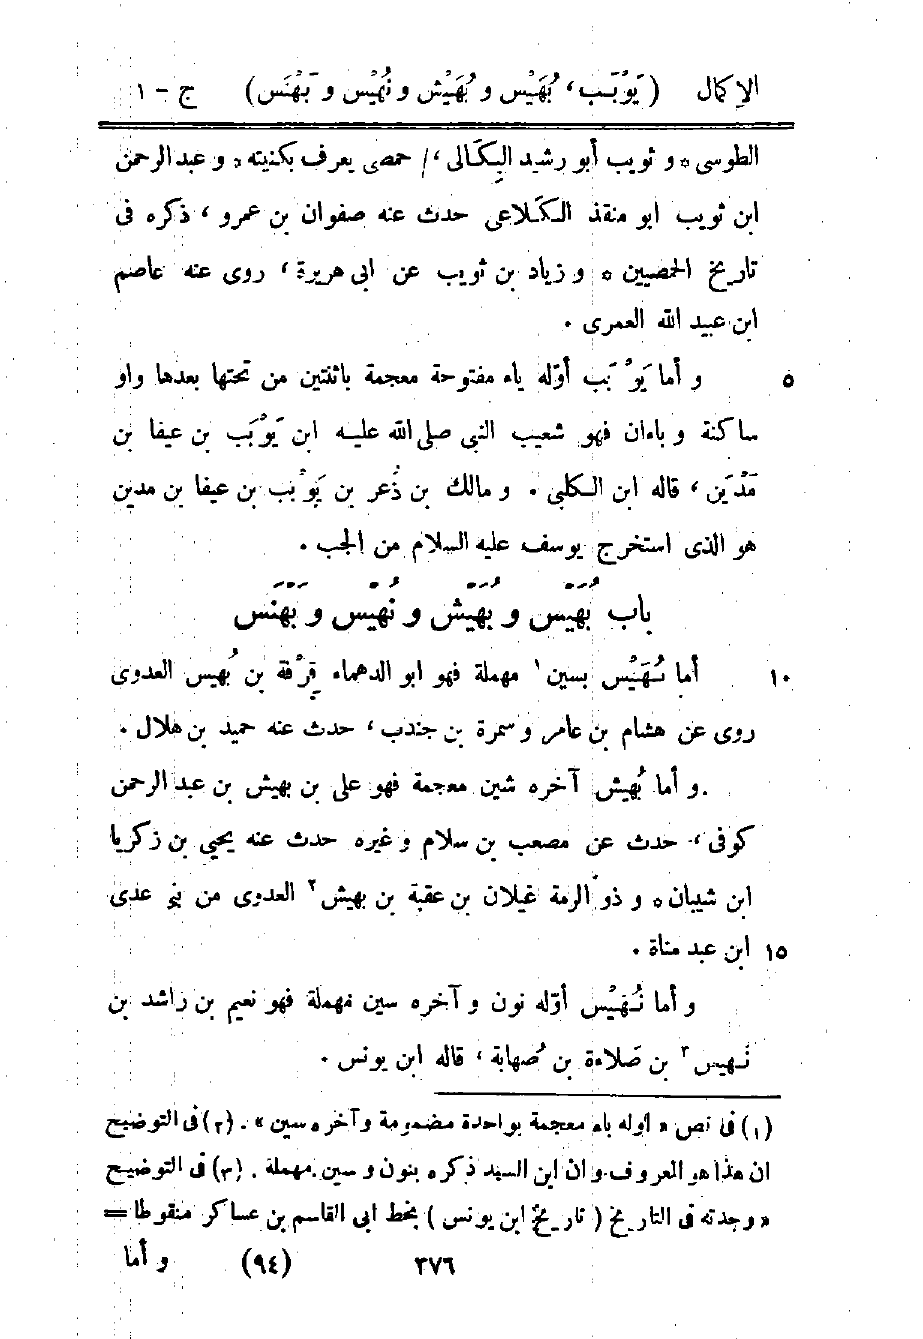 الإكمال (يَوْبَب، بُهَيْس و بُهَيْش و نُهَيْس و بَهْنَس) ج - ١
الطوسى ه و ثويب أبو رشيد البِكَالى، / حمصى يعرف بكنيته ه و عبد الرحمن
ابن ثويب ابو منقذ الكَلاعى حدث عنه صفوان بن عمرو، ذكره فى
تاريخ الحمصيين ه و زياد بن ثويب عن ابى هريرة، روى عنه عاصم
ابن عبيد الله العمرى .
و أما يَوْبَب أوّله ياء مفتوحة معجمة باثنتين من تحتها بعدها واو ٥
ساكنة و باءان فهو شعيب النبى صلى الله عليه ابن يَوْبَب بن عيفا بن
مَدْيَن، قاله ابن الكلبى . و مالك بن ذُعر بن يَوْبب بن عيفا بن مدين
هو الذى استخرج يوسف عليه السلام من الجب .
باب بُهَيْس و بُهَيْش و نُهَيْس و بَهْنَس
أما بُهَيْس بسين ١ مهملة فهو ابو الدهماء قِرْفة بن بُهيس العدوى ١٠
روى عن هشام بن عامر و سمرة بن جندب، حدث عنه حميد بن هلال .
و أما بُهيش آخره شين معجمة فهو على بن بهيش بن عبد الرحمن
كوفى، حدث عن مصعب بن سلام و غيره حدث عنه يحيى بن زكريا
ابن شيبان ه و ذو الرمة غيلان بن عقبة بن بهيش ٢ العدوى من بنى عدى
ابن عبد مناة . ١٥
و أما نُهَيْس أوّله نون و آخره سين مهملة فهو نعيم بن راشد بن
نَهيس ٣ بن صَلاءة بن صُهابة، قاله ابن يونس .
(١) فى نص « اوله باء معجمة بواحدة مضمومة و آخره سين » . (٢) فى التوضيح
ان هذا هو المعروف و ان ابن السيد ذكره بنون و سين مهملة . (٣) فى التوضيح
« وجدته فى التاريخ ( تاريخ ابن يونس ) بخط ابى القاسم بن عساكر منقوطا =
٣٧٦ (٩٤) و أما